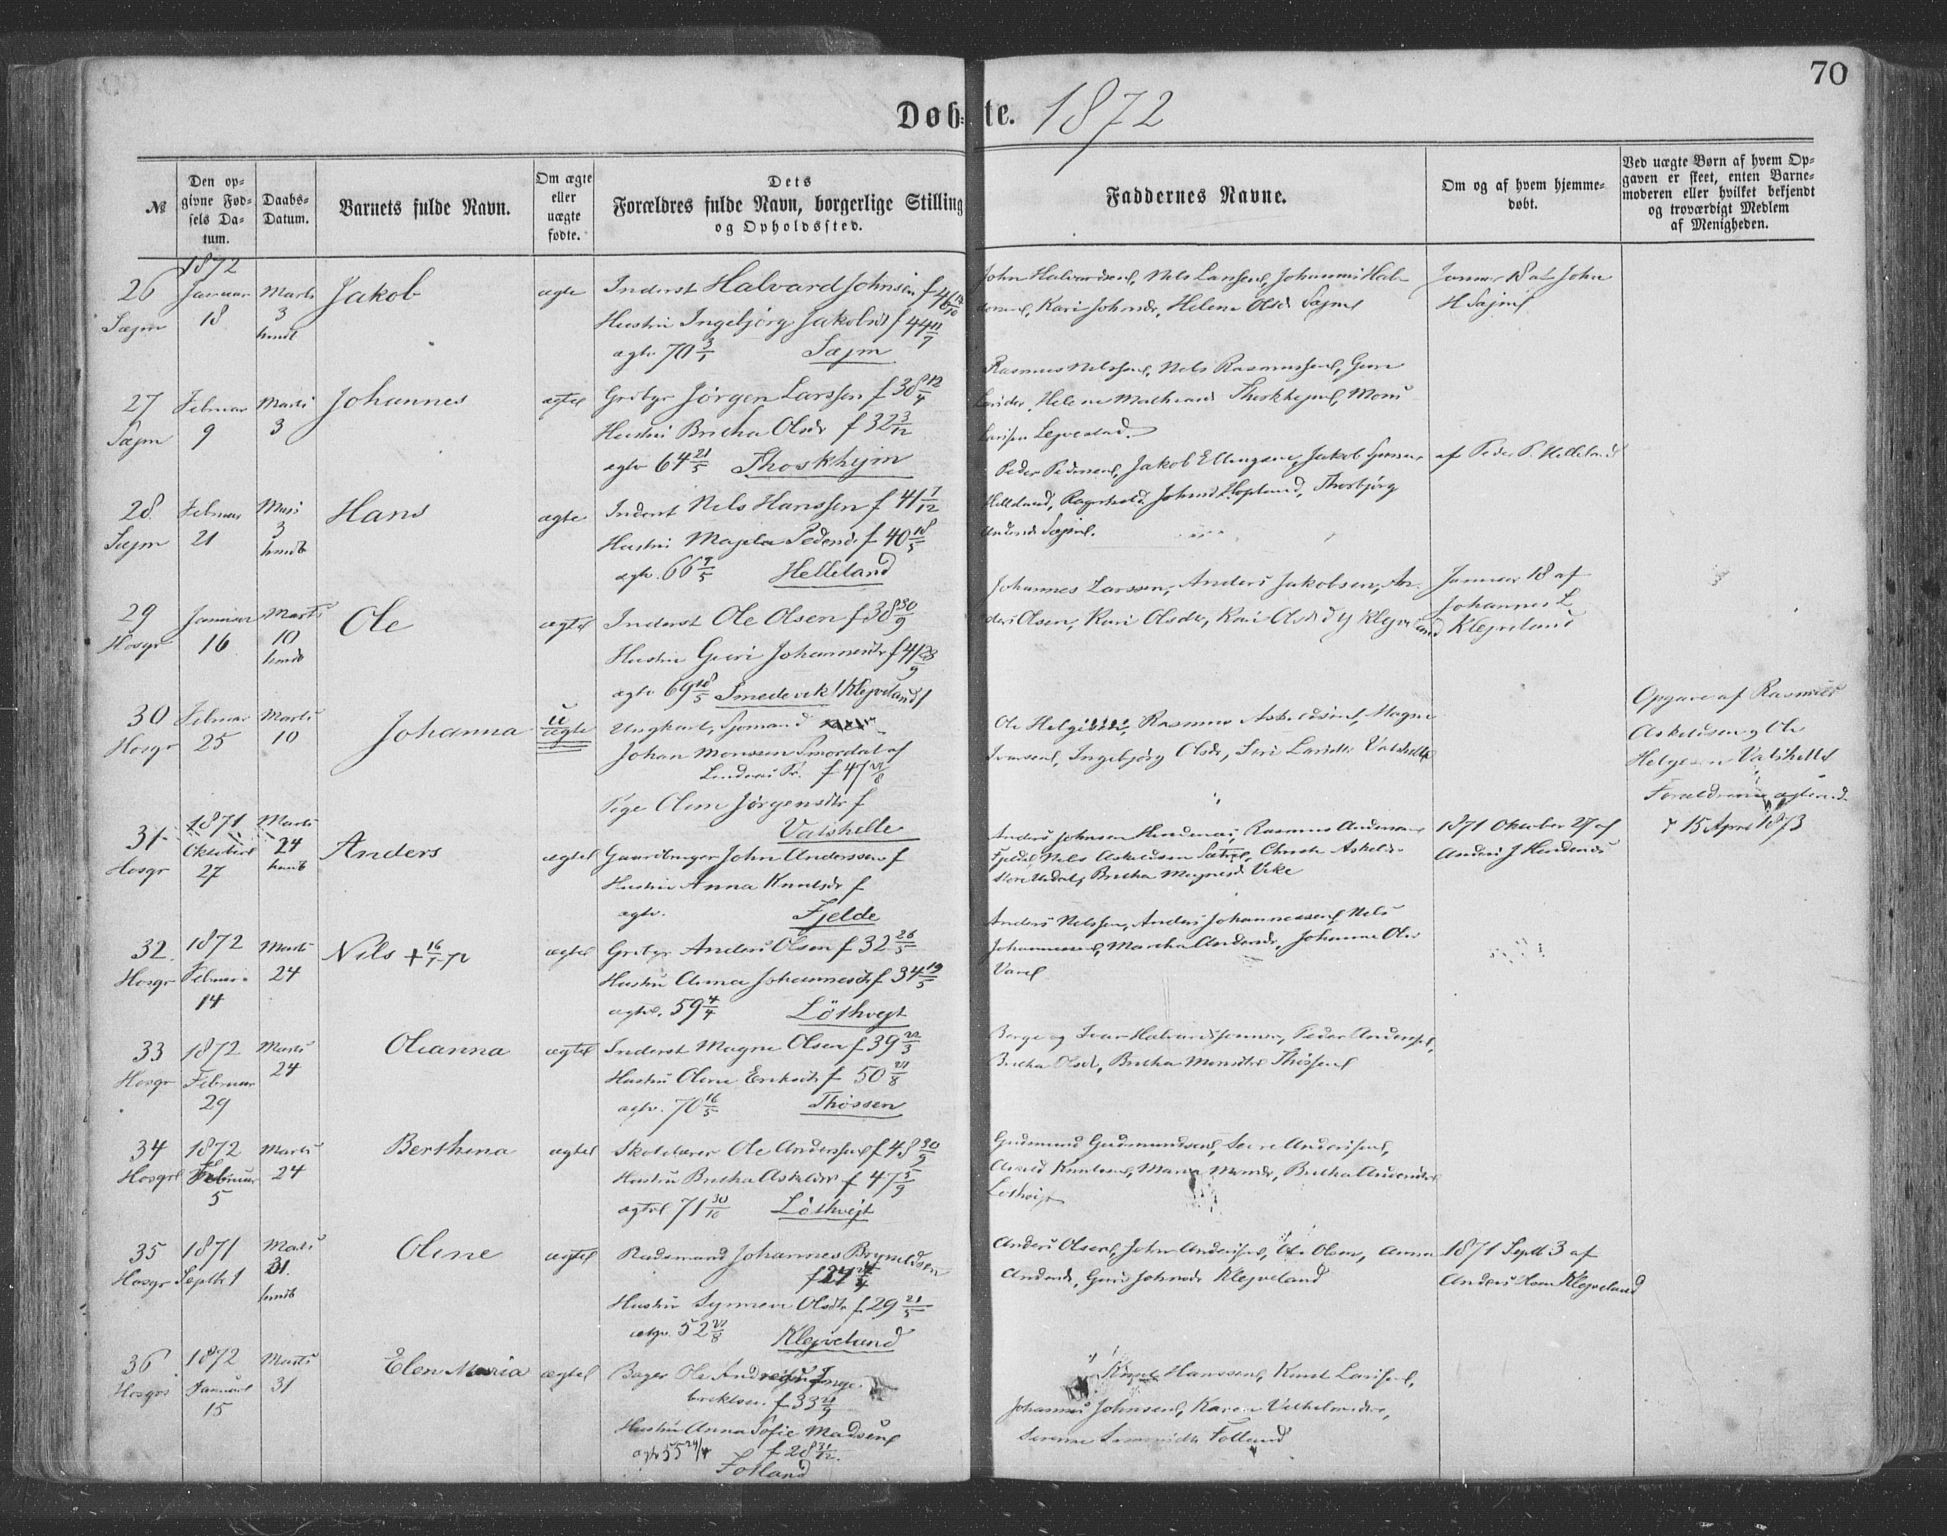 70
Døbte. 1872
№
Den op-
givne Fød-
sels Da-
tum.
Daabs-
Datum.
Barnets fulde Navn.
Om ægte
eller
uægte
fødte.
Dets
Forældres fulde Navn, borgerlige Stilling
og Opholdssted.
Faddernes Navne.
Om og af hvem hjemme-
døbt.
Ved uægte Børn af hvem Op-
gaven er skeet, enten Barne-
moderen eller hvilket bekjendt
og troværdigt Medlem
af Menigheden.
26
Sæjm
1872
Januar
18
Marts
3
hmdt
Jakob
ægte
Inderst Halvard Johnsen f 46 12/10
Hustru Ingebjørg Jakobsdr f 44 11/7
ægtv 70 3/1 Sæjm
John Halvardsens, Nels Larssens, Johannes Hal-
vorsens, Kari Johnsdr, Helene Olsdr Sæjms
Januar 18 af John
H Sæjms
27
Sæjm
Februar
9
Marts
3
Johannes
ægte
Grbtgr Jørgen Larssen f 38 12/4
Hustru Britha Olsdr f 32 3/12
ægtv 64 21/5 Thoskhejm
Rasmus Nelssens, Nels Rasmussens, Guri
Larsdr, Helene Mathisdr Thoskhejms, Mons
Larssen Lejvestad.
28
Sæjm
Februar
21
Marts
3
hmdt
Hans
ægte
Inderst Nels Hanssen f 41 7/12
Hustru Magla Pedersdr f 40 18/5
ægtv. 66 9/5 Helleland
Peder Pedersens, Jakob Ellingsens, Jakob
Helleland, Ragnhild Johnsd Hopland, Thorbjørg
Andersdr Sæjms.
af Peder P. Helleland
29
Hosgr
Januar
16
Marts
10
hmdt
Ole
ægte
Inderst Ole Olsen f 38 30/9
Hustru Guri Johannesdtr f 41 28/9
ægtv 69 18/5 Smedevik / Klejveland /
Johannes Larssen, Anders Jakobsen, An-
ders Olsen, Kari Olsdr, Kari Olsdr Klejveland
Januar 18 af
Johannes L
Klejveland
30
Hosgr
Februar
25
Marts
10
Johanna
u
ægte
Ungkarl, Sømand
Johan Monssen Smørdal af
Linderås Pr. f 47 21/8
Pige Oline Jørgensdtr f
Vatshelle
Ole Helgesen, Rasmus Askeldsens, Magne
Iversens, Ingebjørg Olsdr, Siri Larsdtr Vatshelle
Opgave af Rasmus
Askeldsen og Ole
Helgesen Vatshelle
Forældrene ægteviet
15 April 1873
31
Hosgr
1871
Oktober
27
Marts
24
hmdt
Anders
ægte
Gaardbruger John Anderssen f
Hustru Anna Knutsdr f
ægtv. Fjelde
Anders Johnsen Hindenæs, Rasmus Anderssen
Fjelde, Nels Askeldsen Sætre, Christi Askelds-
Store Urdal, Britha Magnesd Vike
1871 Oktober 27 af
Anders J Hindenæs
32.
Hosgr
1872
Februar
14
Marts
24
Nils + 16/7-72
ægte
Grbtgr Anders Olsen f 32 26/5
Hustru Anna Johannesdtr f 34 19/5
ægtv. 59 4/4 Løthvejt
Anders Nelssen, Anders Johannessens, Nels
Johannessens, Martha Andersdr, Johanne Ols-
Vares
33
Hosgr
1872
Februar
29
Marts
24
Oleanna
ægte
Inderst Magne Olsen f 39 22/3
Hustru Oline Eriksdtr f 50 21/8
ægtv. 70 16/5 Thossen
Børge og Ivar Halvardssønner, Peder Anderssens,
Britha Olsd, Britha Monsdtr Thossens
34
Hosgr
1872
Februar
5
Marts
24
Berthina
ægte
Skolelærer Ole Anderssen f 48 30/9
Hustru Britha Askeldsdr f 47 5/9
ægtv 71 30/10 Løthvejt
Gudmund Gudmundsens, Anderssens,
Knutsens, Maria Monsdr, Britha Andersdtr
Løthvejt
35
Hosgr
1871
Septb 1
Marts
31.
hmdt
Oline
ægte
Radsmand Johannes Brynildsen
f 27 4/4
Hustru Synneve Olsdtr f 29 21/5
ægtv. 52 21/8 Klejveland
Anders Olsens, John Anderssens, Ole Olsen, Anna
Andersdr, Guri Johnsdr Klejveland
1871 Septb 3 af
Anders Klejveland
36
Hosgr
1872
Januar
15
Marts
31
Elen Maria
ægte
Bager Ole Andreas Inge-
brektsen. f 33 11/9
Hustru Anna Sofie Madsens
ægtv 55 24/4 f 28 31/12.
Folland
Knut Hanssens, Knut Larssens,
Johannes Johnsens, Karen Vilhelmsdr,
Folland